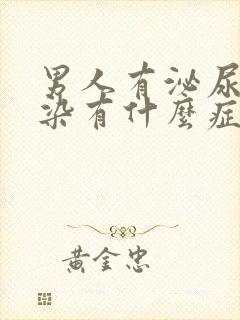 男人有泌尿
染有什麼症
黃金忠